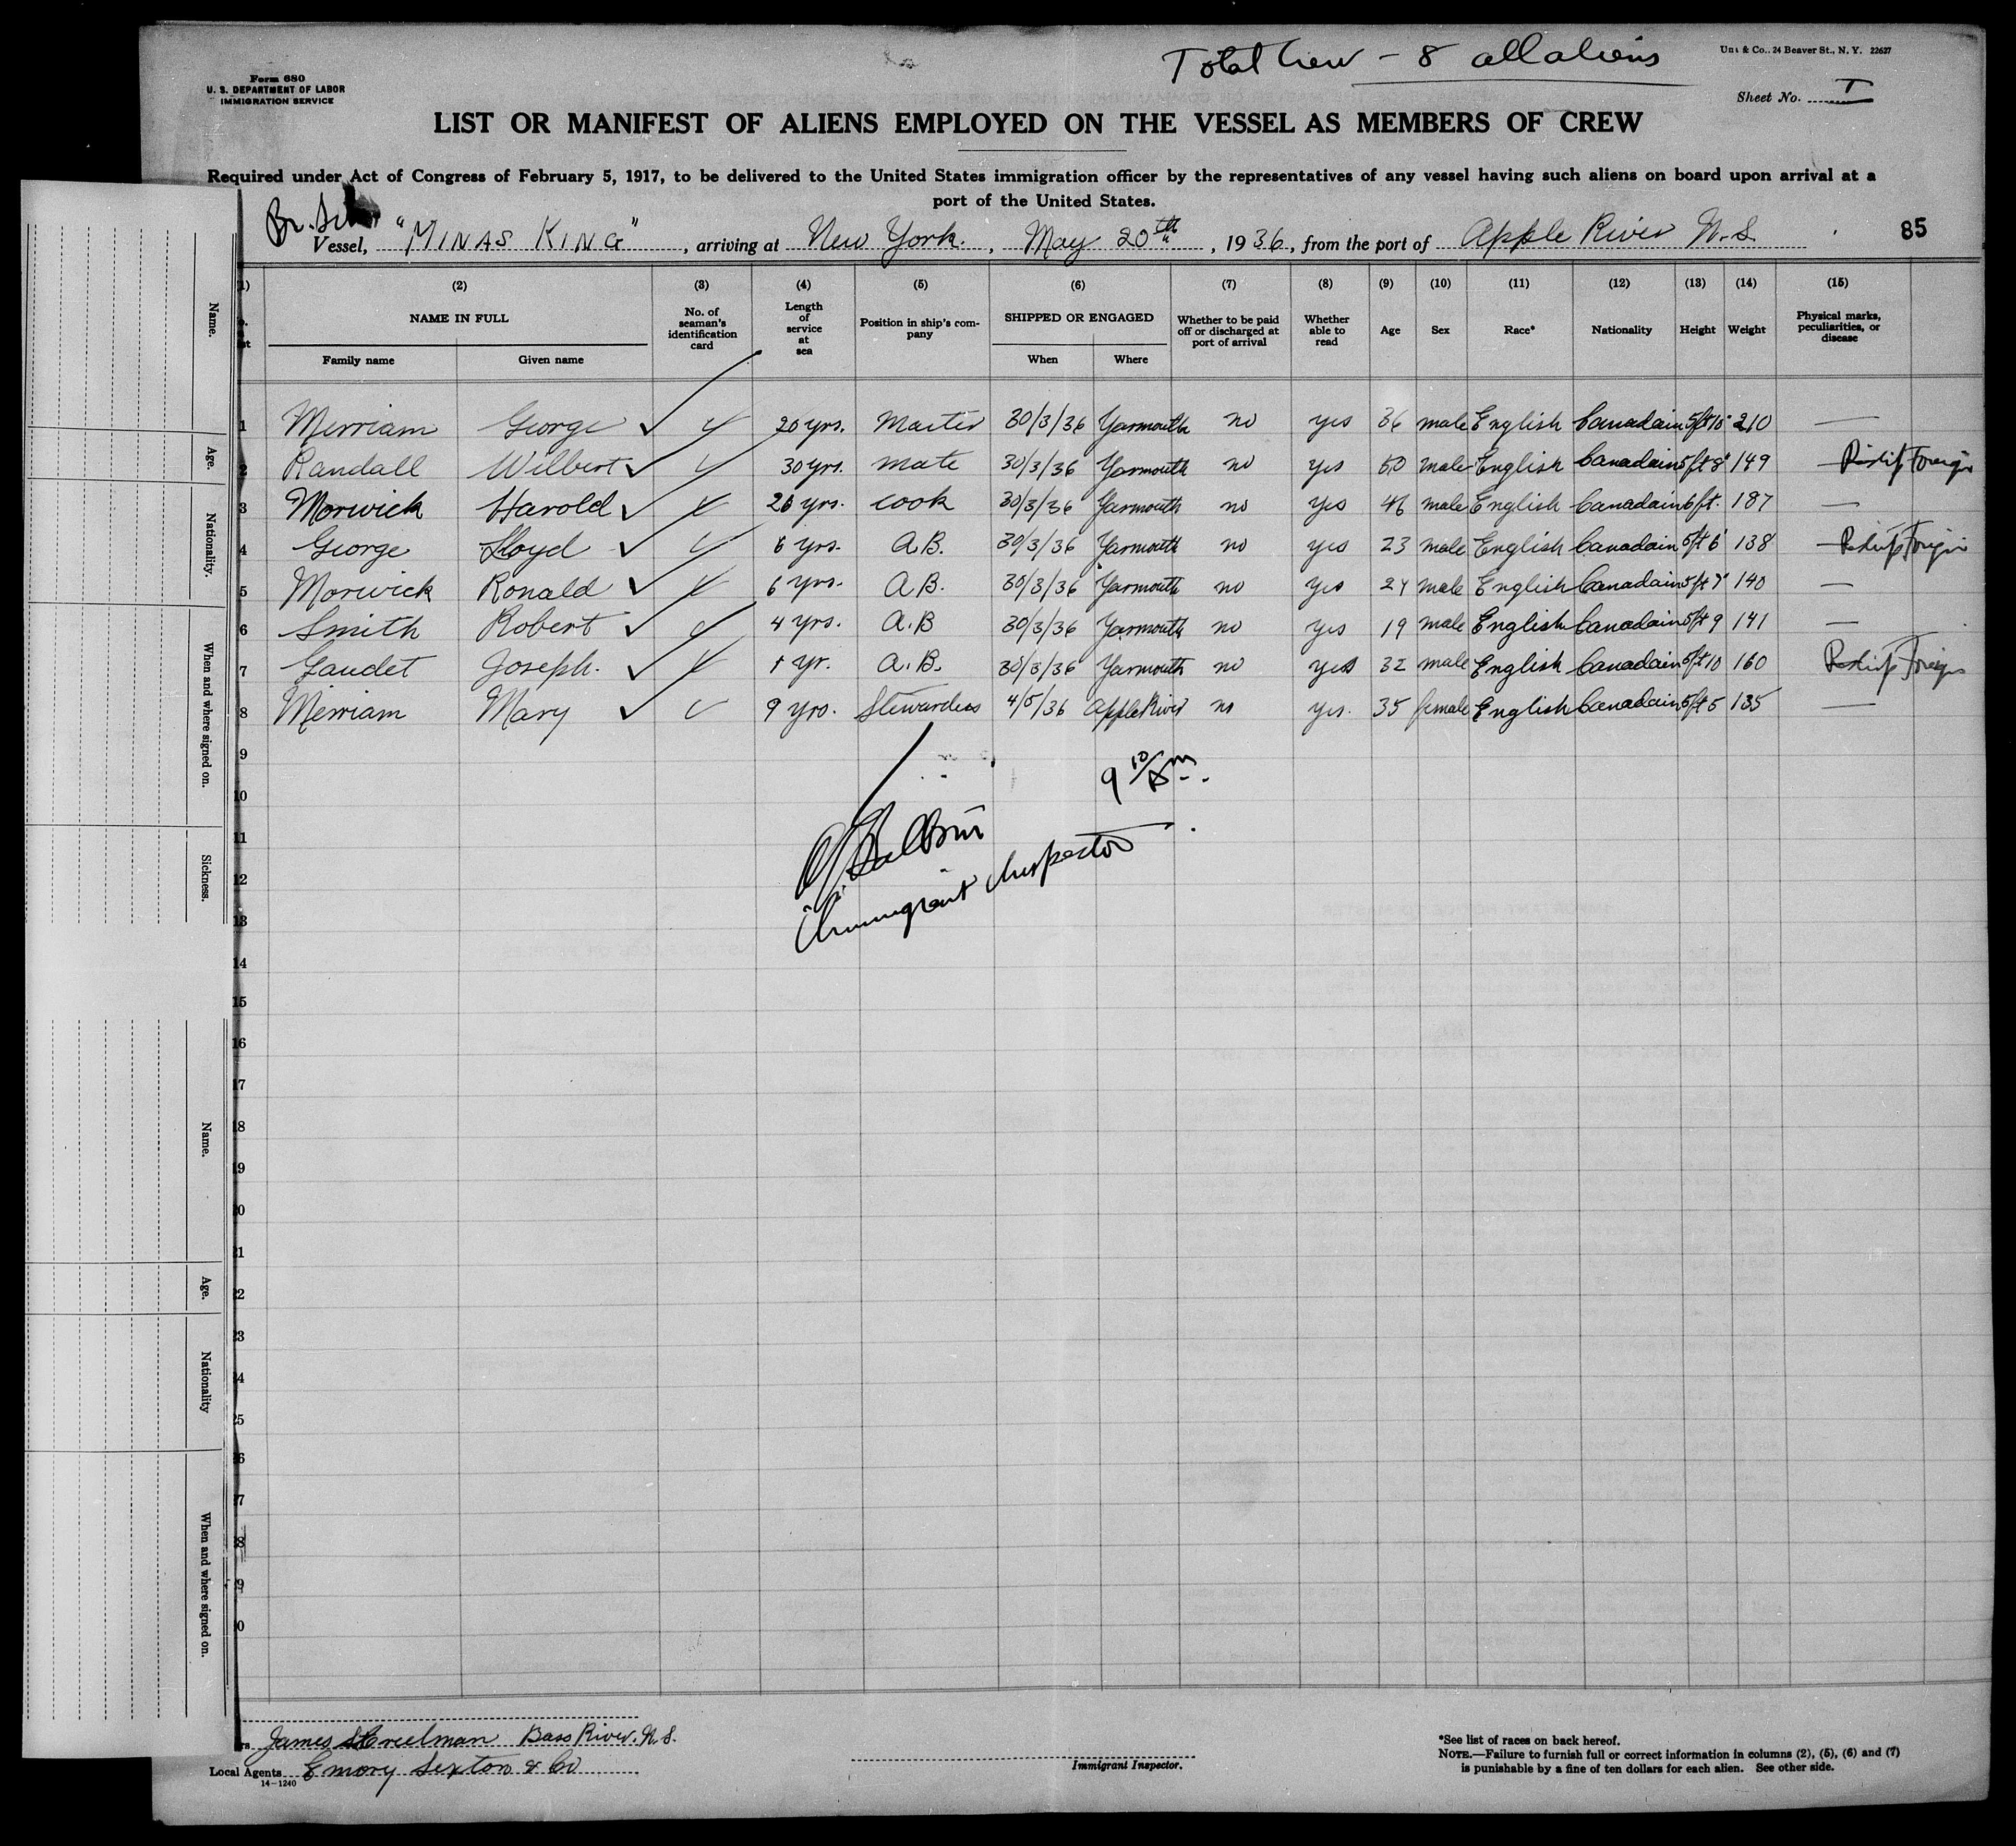 Total Crew - 8 all aliens
Form 680
U. S. DEPARTMENT OF LABOR
IMMIGRATION SERVICE
& Co., 24 Beaver St., N. Y. 22627
Sheet No. I
LIST OR MANIFEST OF ALIENS EMPLOYED ON THE VESSEL AS MEMBERS OF CREW
Required under Act of Congress of February 5, 1917, to be delivered to the United States immigration officer by the representatives of any vessel having such aliens on board upon arrival at a
port of the United States.
Br. Sch
Vessel, "MINAS KING", arriving at New York., May 20th, 1936, from the port of Apple River N.S. 85
(1) (2) (3) (4) (5) (6) (7) (8) (9) (10) (11) (12) (13) (14) (15)
NAME IN FULL No. of seaman's identification card Length of service at sea Position in ship's company SHIPPED OR ENGAGED Whether to be paid off or discharged at port of arrival Whether able to read Age Sex Race* Nationality Height Weight Physical marks, peculiarities, or disease
Family name Given name When Where
1 Merriam George ✓ 20 yrs. Master 30/3/36 Yarmouth no yes 36 male English Canadain 5ft 10" 210 —
2 Randall Wilbert ✓ 30 yrs. mate 30/3/36 Yarmouth no yes 50 male English Canadain 5ft 8" 149 — Foreign
3 Morwick Harold ✓ 26 yrs. cook 30/3/36 Yarmouth no yes 46 male English Canadain 6ft. 187 —
4 George Lloyd ✓ 6 yrs. A.B. 30/3/36 Yarmouth no yes 23 male English Canadain 5ft 6" 138 — Foreign
5 Morwick Ronald ✓ 6 yrs. A.B. 30/3/36 Yarmouth no yes 24 male English Canadain 5ft 7" 140 —
6 Smith Robert ✓ 4 yrs. A.B 30/3/36 Yarmouth no yes 19 male English Canadain 5ft 9 141 —
7 Gaudet Joseph. ✓ 1 yr. A.B. 30/3/36 Yarmouth no yes 32 male English Canadain 5ft 10 160 Foreign
8 Merriam Mary ✓ 9 yrs. Stewardess 4/5/36 Apple River no yes. 35 female English Canadain 5ft 5 135 —
9
10
11
12
13
14
15
16
17
18
19
20
21
22
23
24
25
26
27
28
29
30
9 10/Am.
Immigrant Inspector
Name.
Age.
Nationality.
When and where signed on.
Sickness.
Name.
Age.
Nationality
When and where signed on.
James Creelman Bass River. N.S.
Local Agents Emory Sexton & Co
14-1240
Immigrant Inspector.
*See list of races on back hereof.
NOTE.—Failure to furnish full or correct information in columns (2), (5), (6) and (7)
is punishable by a fine of ten dollars for each alien. See other side.